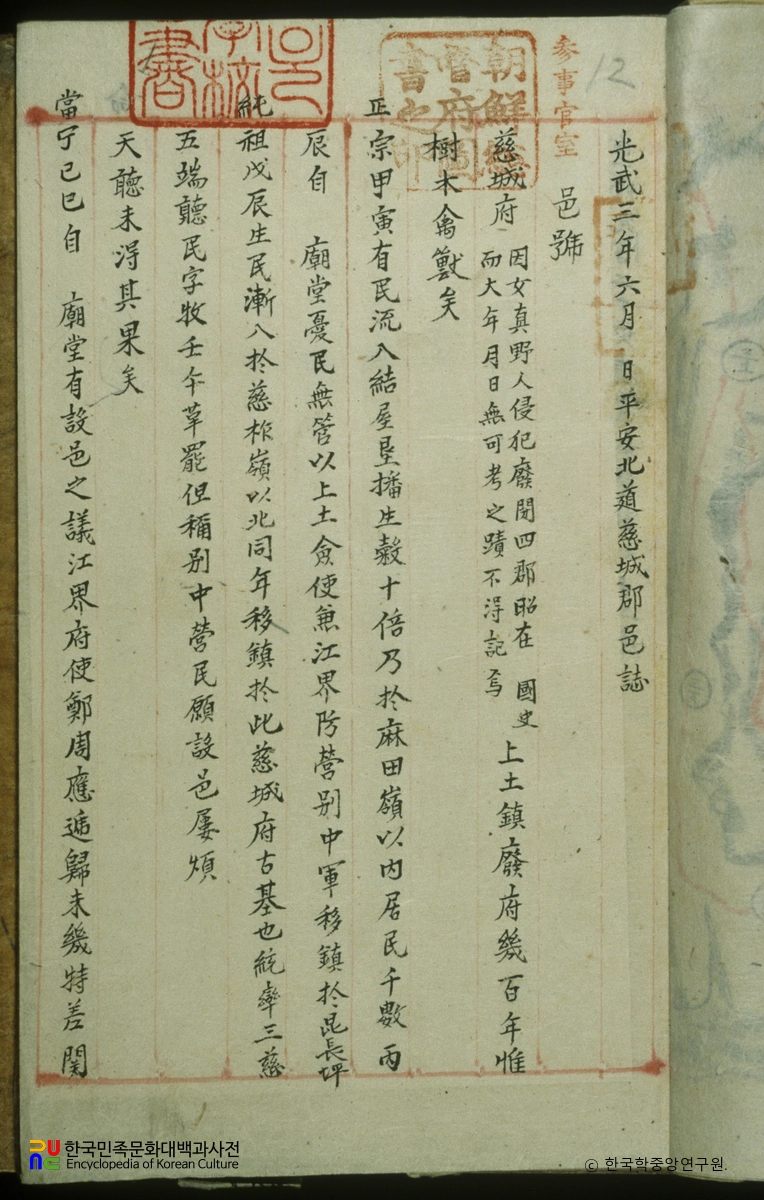 12
參事官室
朝鮮總
督府圖
書之印
光武三年六月 日平安北道慈城郡邑誌
邑號
慈城府 因女真野人侵犯廢閭四郡昭在 國史
而大年月日無可考之蹟不得記焉 上土鎮廢府幾百年惟
樹木禽獸矣
正宗甲寅有民流入結屋墾播生穀十倍乃於麻田嶺以內居民千數丙
辰自 廟堂憂民無管以上土僉使兼江界防營別中軍移鎮於昆長坪
純祖戊辰生民漸入於慈柞嶺以北同年移鎮於此慈城府古基也統率三慈
五端聽民字牧壬午革罷但稱別中營民願設邑屢煩
天聽未得其果矣
當宁己巳自 廟堂有設邑之議江界府使鄭周應遞歸未幾特差関
한국민족문화대백과사전
Encyclopedia of Korean Culture
© 한국학중앙연구원.